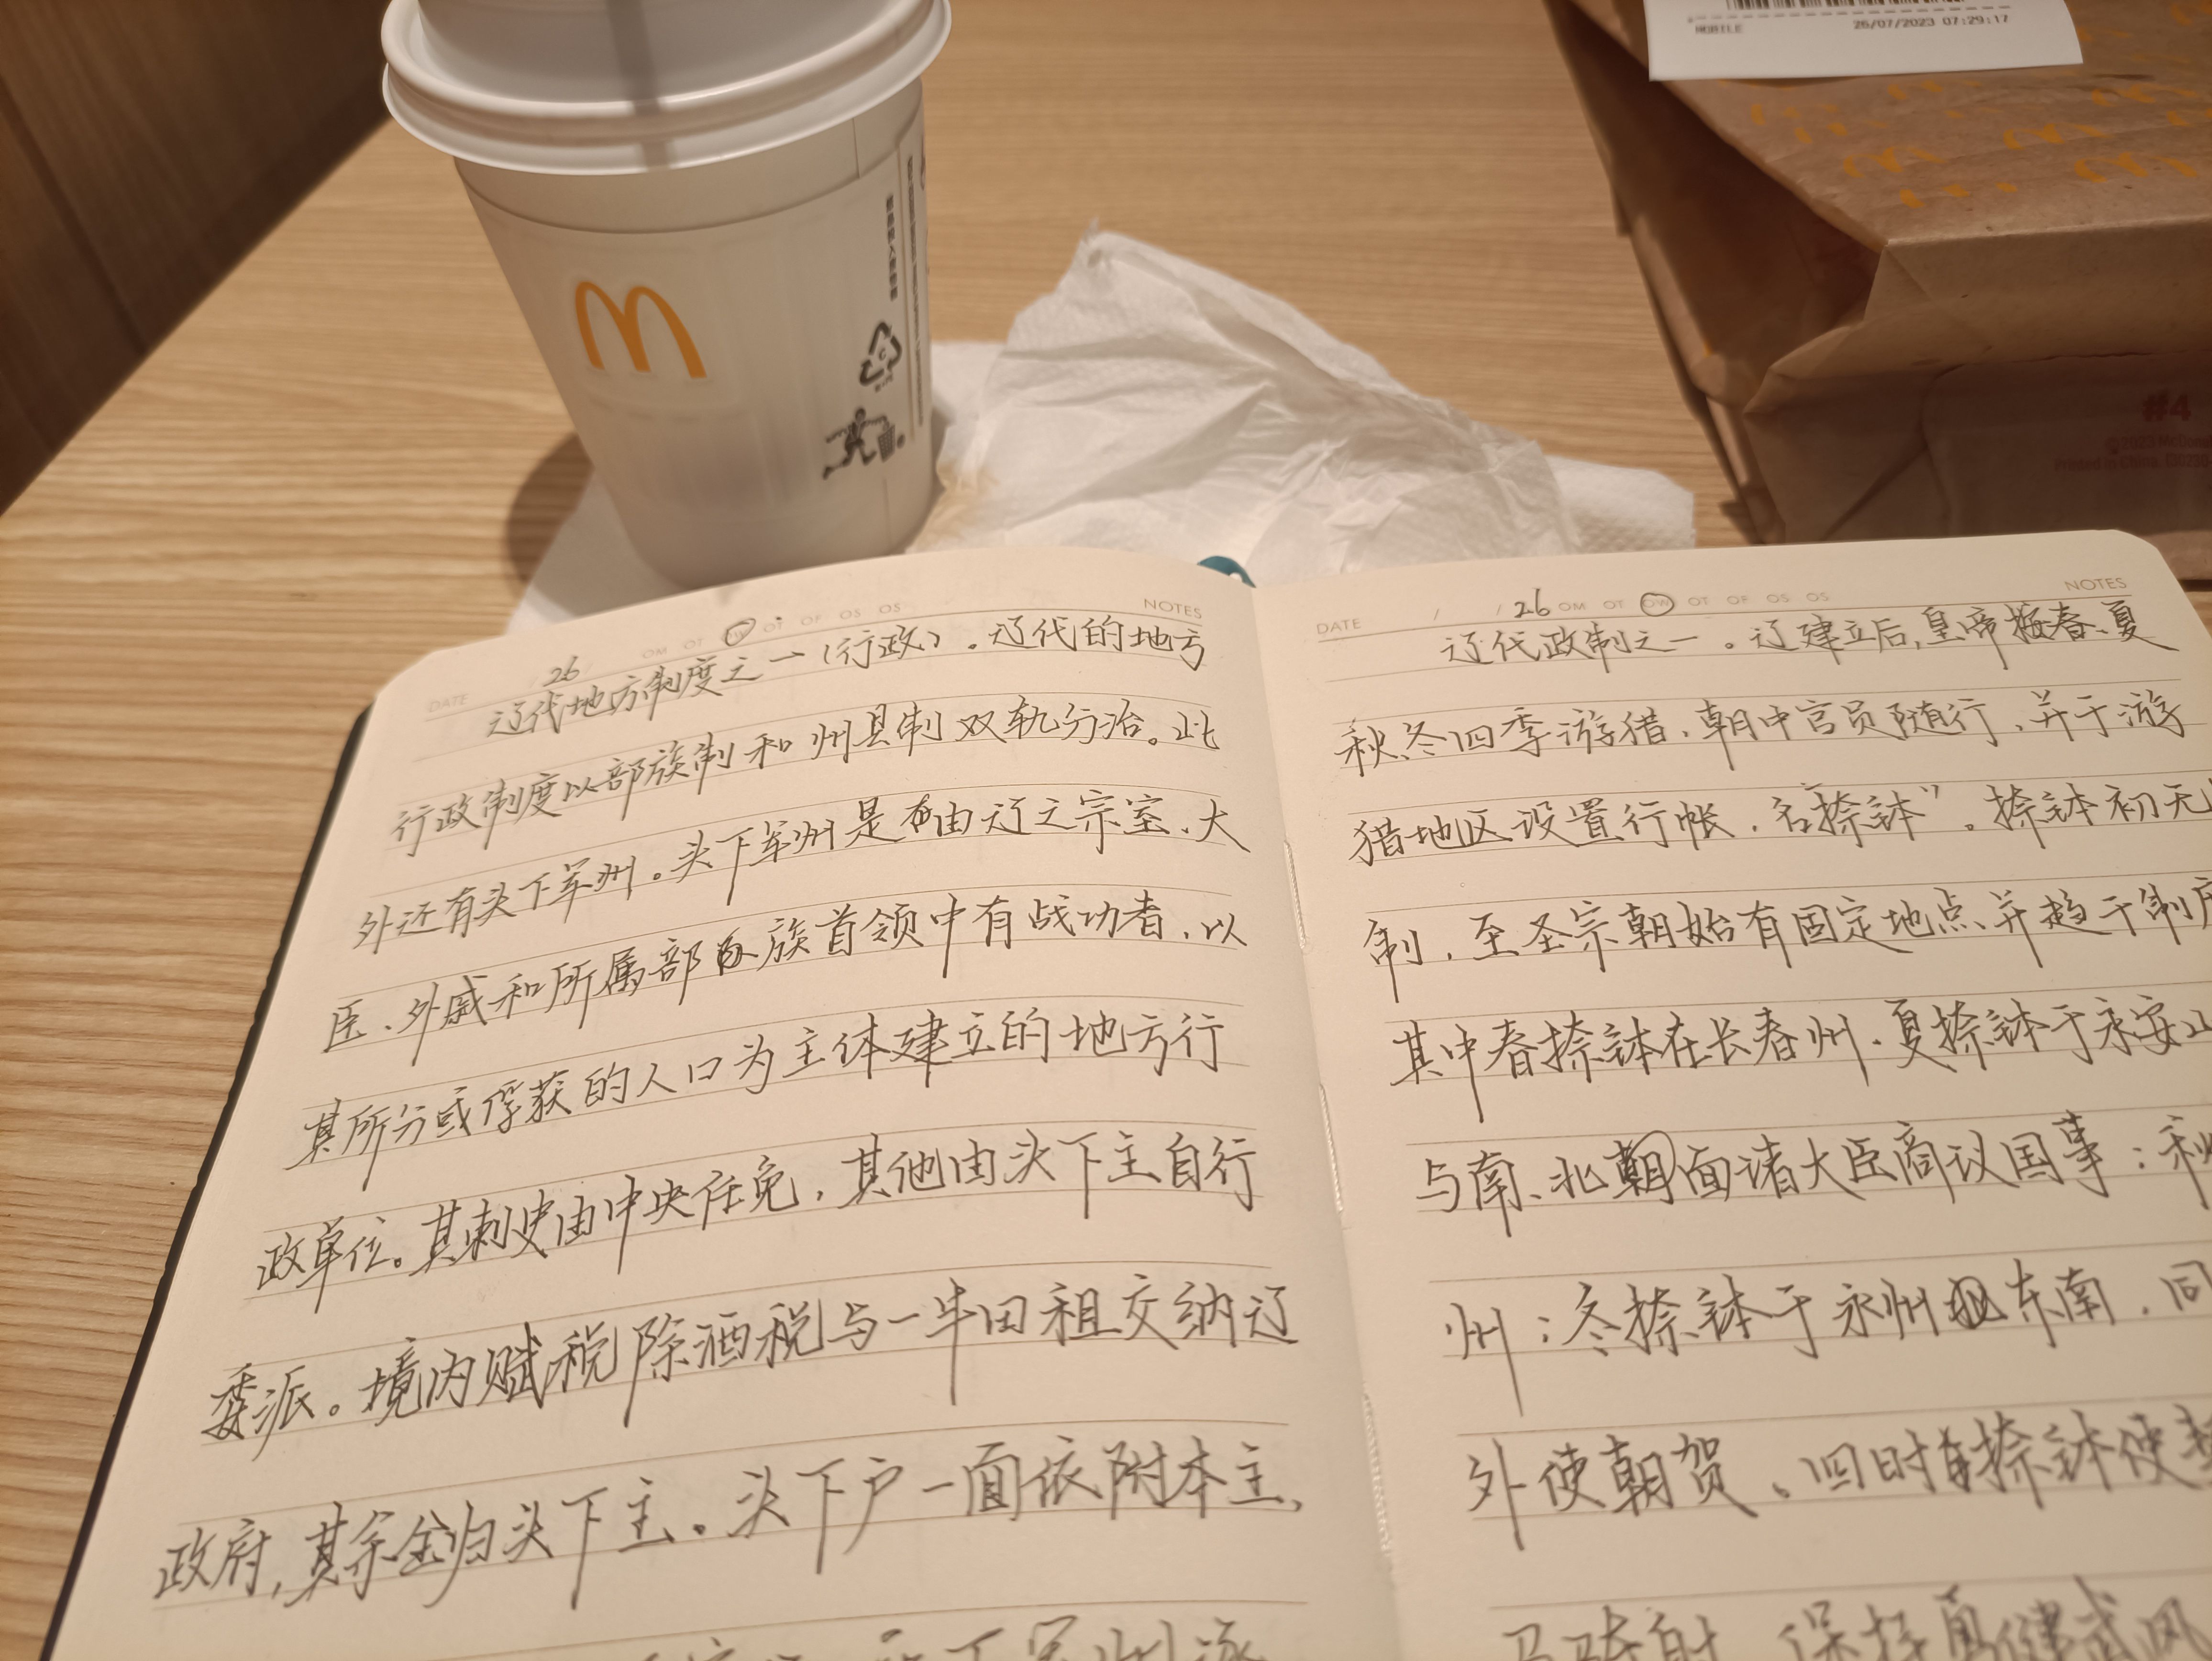 MOBILE 26/07/2023 07:29:17
#4
©2023 McDon
Printed in China.
DATE 26 OM OT OW OT OF OS OS NOTES
辽代地方制度之一（行政）。辽代的地方
行政制度以部族制和州县制双轨分治。此
外还有头下军州。头下军州是由辽之宗室、大
臣、外戚和所属部族首领中有战功者，以
其所分或俘获的人口为主体建立的地方行
政单位。其刺史由中央任免，其他由头下主自行
委派。境内赋税除酒税与一半田租交纳辽
政府，其余全归头下主。头下户一面依附本主，
DATE / / 26 OM OT OW OT OF OS OS NOTES
辽代政制之一。辽建立后，皇帝按春、夏
秋、冬四季游猎，朝中官员随行，并于游
猎地区设置行帐，名“捺钵”。捺钵初无
制，至圣宗朝始有固定地点，并趋于制度
其中春捺钵在长春州，夏捺钵于永安山
与南、北朝面诸大臣商议国事；秋
州；冬捺钵于永州东南，同
外使朝贺。四时捺钵使